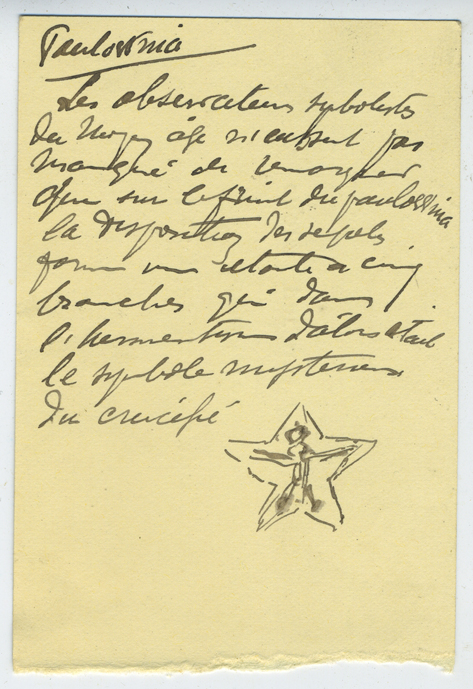 Paulownia
Les observateurs symbolistes
du Moyen age n'eussent pas
manqué de remarquer
que sur le fruit du paulownia
la disposition des sepals
forme une etoile a cinq
branches qui dans
l'hermetisme d'alors etait
le symbole mysterieux
du crucifié